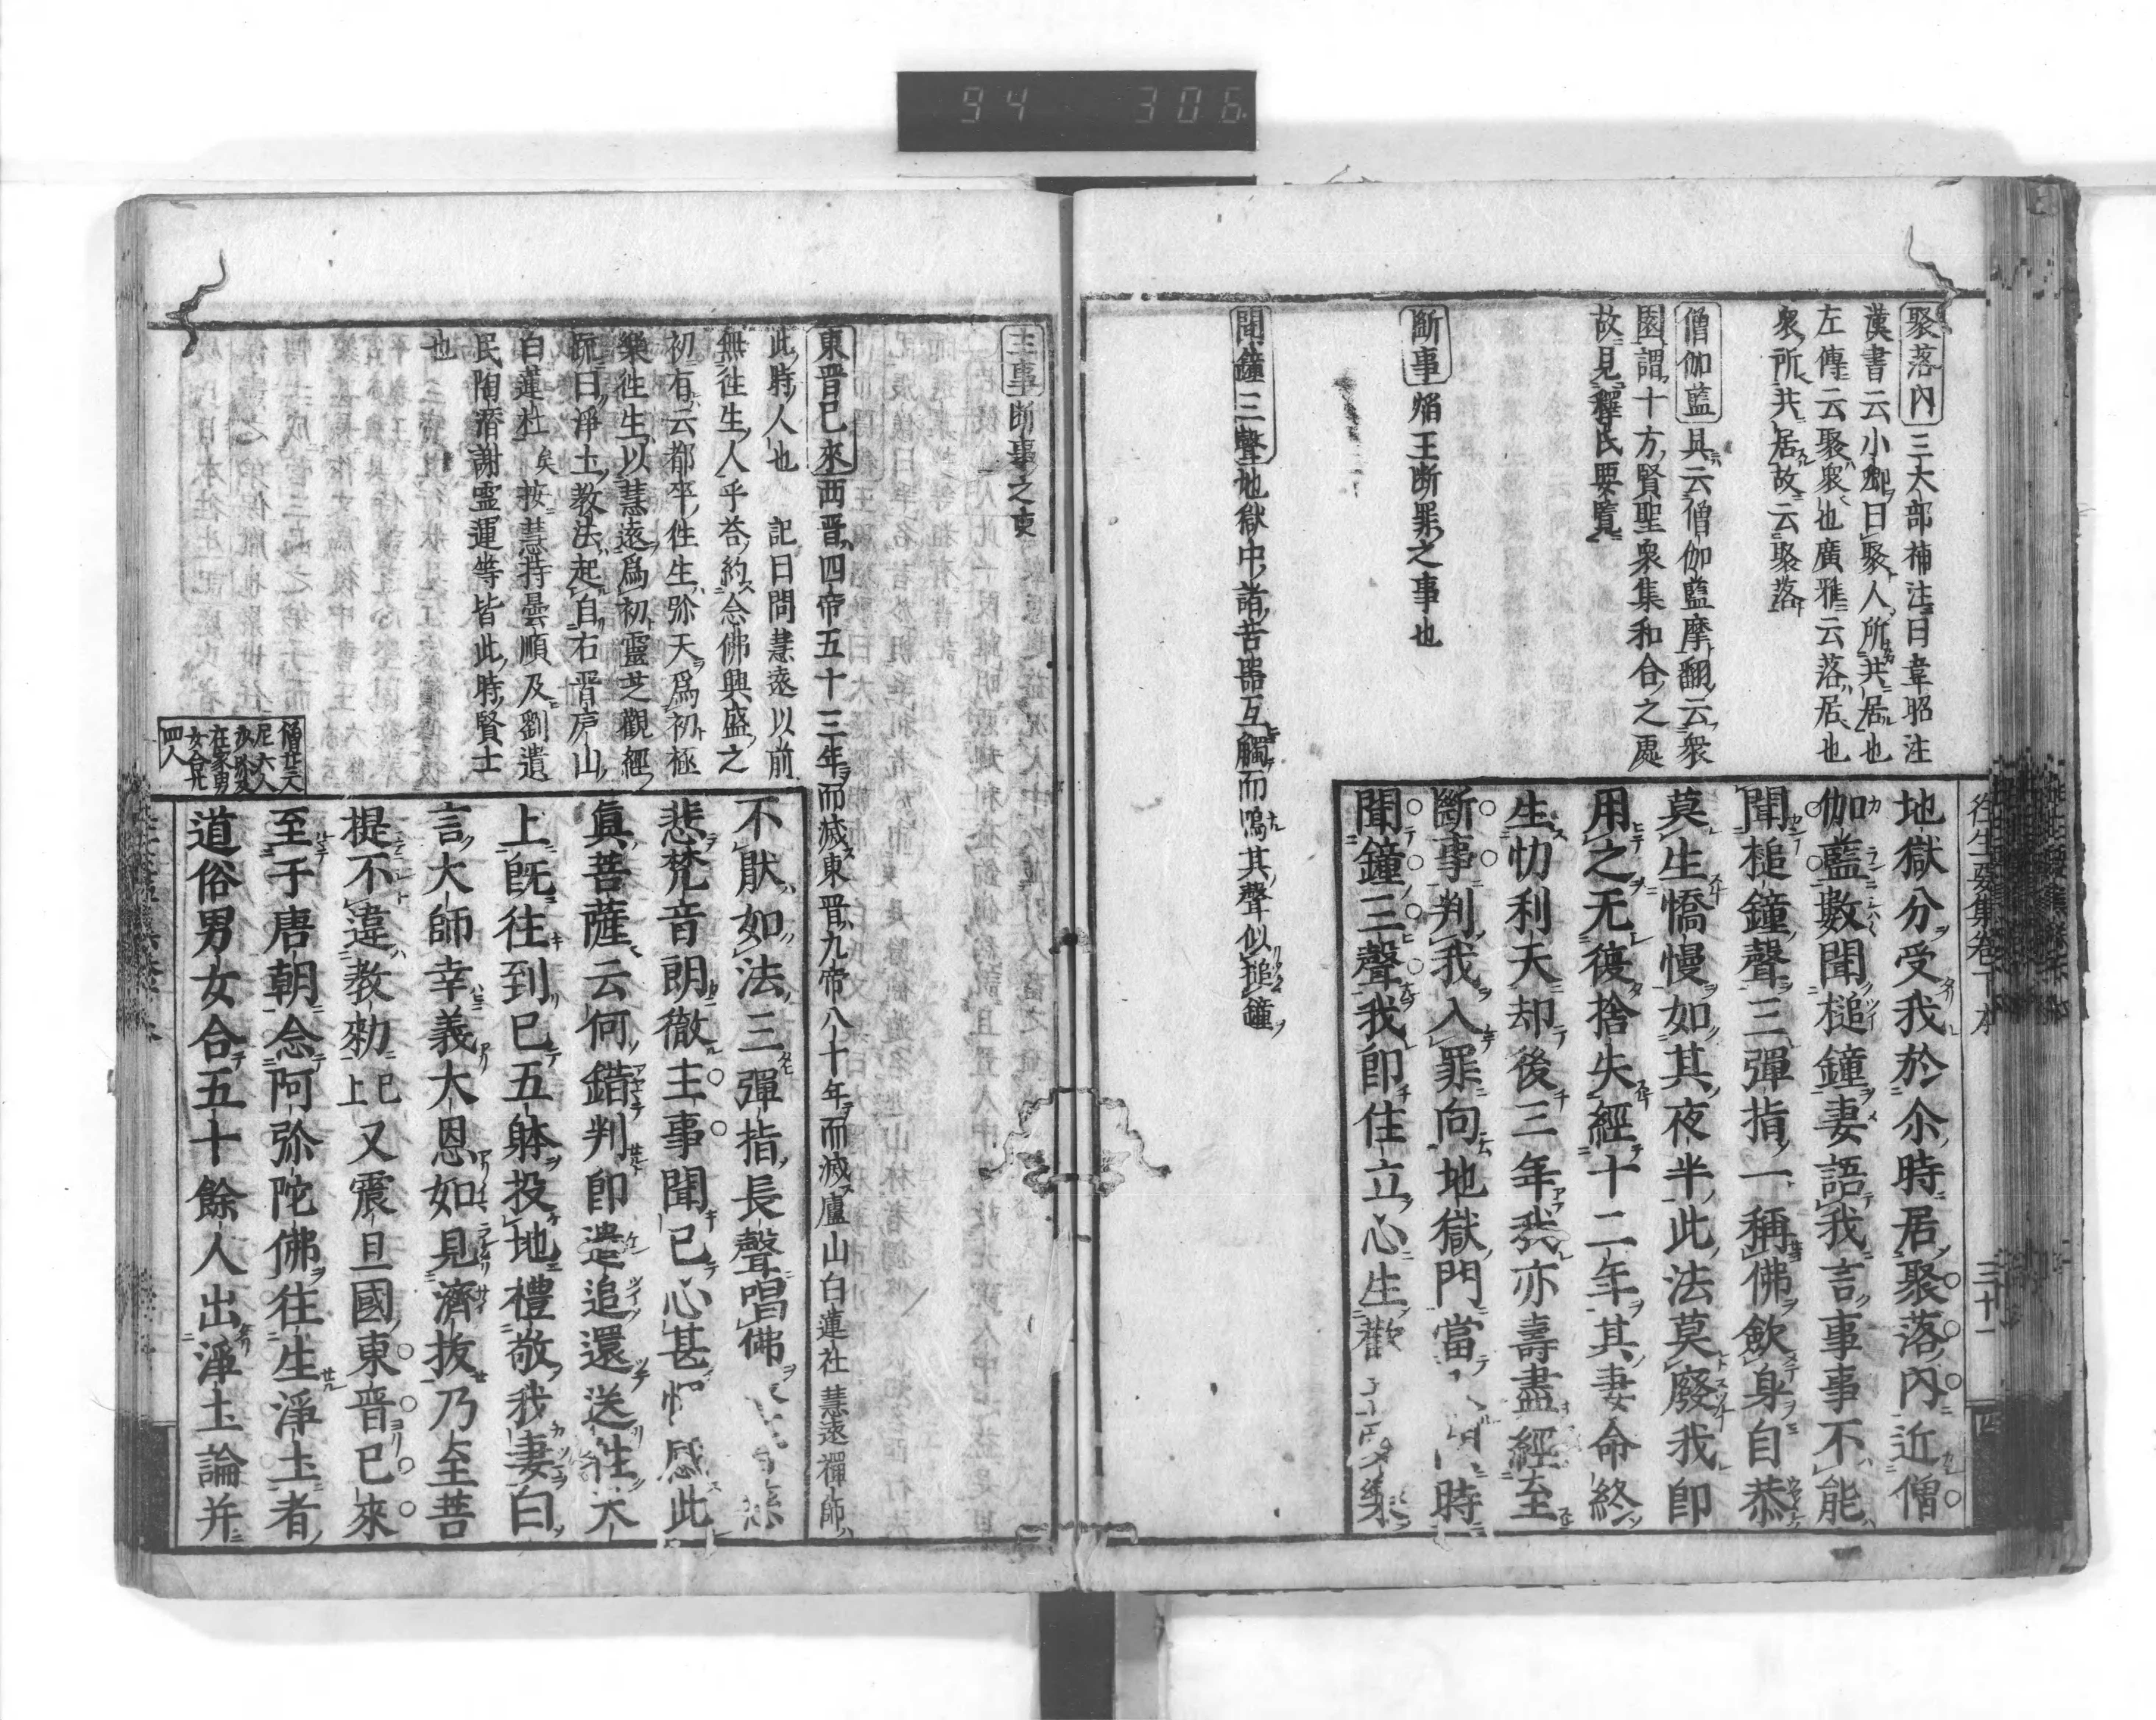 94 306
往生要集卷下本 三十一
聚落內三大部補注曰韋昭注
漢書云小鄉曰聚人所共居也
左傳云聚衆也廣雅云落居也
衆所共居故云聚落
僧伽藍具云僧伽藍摩翻云衆
園謂十方賢聖衆集和合之處
故見釋氏要覽
斷事焰王断罪之事也
聞鐘三聲地獄中諸苦器互觸而鳴其聲似搥鐘
地獄分受我於尒時居聚落內近僧
伽藍數聞槌鐘妻語我言事事不能
聞槌鐘聲三彈指一稱佛歛身自恭
莫生憍慢如其夜半此法莫廢我即
用之无復捨失經十二年其妻命終
生忉利天却後三年我亦壽盡經至
斷事判我入罪向地獄門當 時
聞鐘三聲我即住立心生歡
主事断事之吏
東晋已來西晋四帝五十三年而滅東晋九帝八十年而滅廬山白蓮社慧遠禪師
此時人也 記曰問慧遠以前
無往生人乎荅約念佛興盛之
初有云都卒往生弥天爲初極
樂往生以慧遠爲初靈芝觀經
䟽曰淨土教法起自右晋庐山
白蓮社矣按慧持曇順及劉遺
民陶潛謝霊運等皆此時賢士
也
不猒如法三彈指長聲唱佛
悲梵音朗徹主事聞已心甚 感此
眞菩薩云何錯判即遣追還送往天
上既往到已五躰投地禮敬我妻白
言大師幸義大恩如見濟拔乃至菩
提不違教勑已上又震旦國東晋已來
至于唐朝念阿弥陀佛往生淨土者
道俗男女合五十餘人出淨土論并
僧廿三人
尼六人
在家男
女合廿
四人